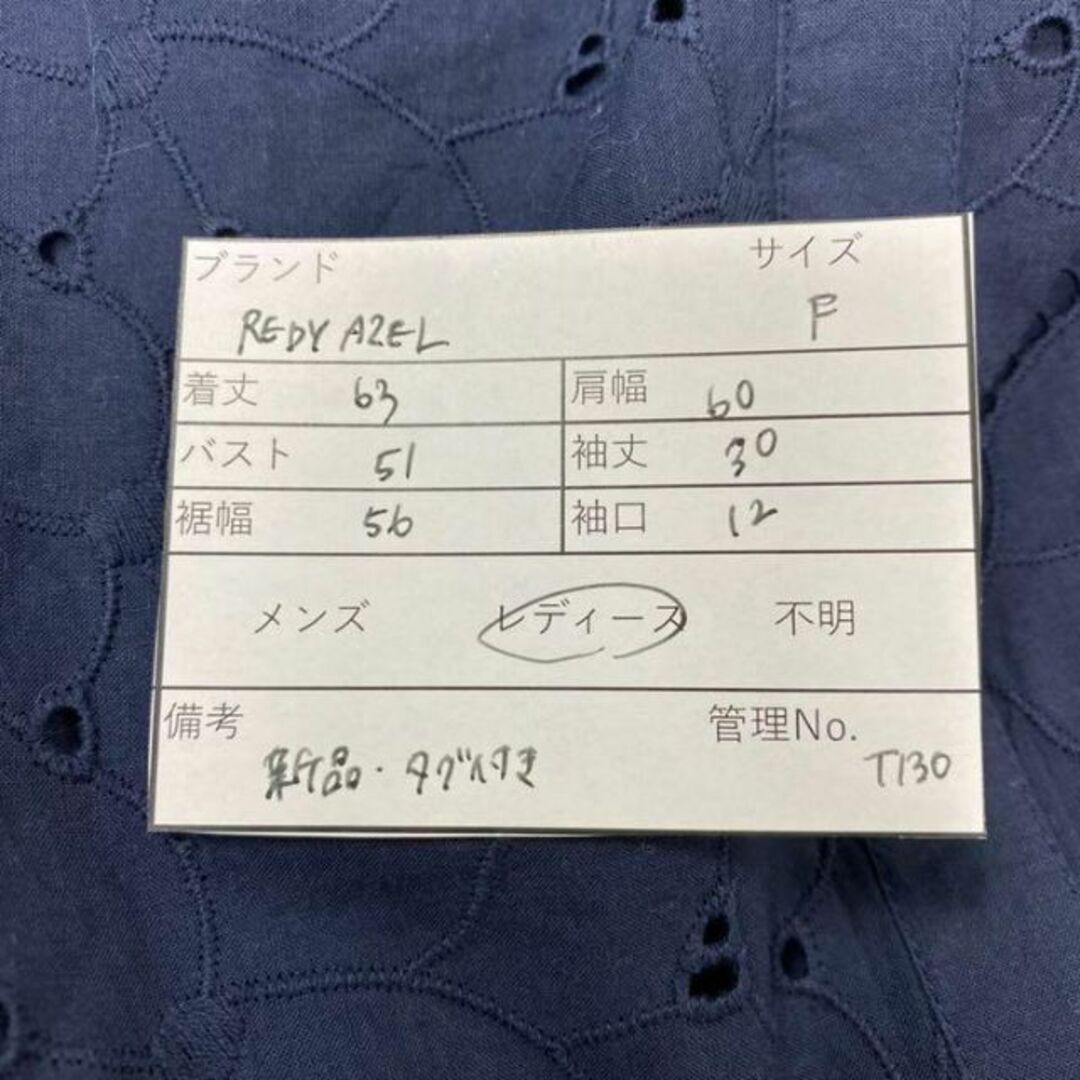 ブランド サイズ
REDY AZEL F
着丈 63 肩幅 60
バスト 51 袖丈 30
裾幅 56 袖口 12
メンズ レディース 不明
備考 管理No.
新品・タグ付き T130